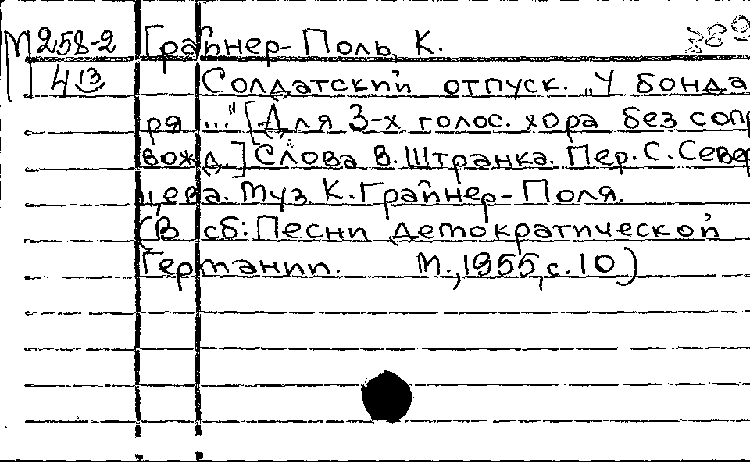 М258-2 Грайнер-Поль, К. 389
413 Солдатский отпуск. „У бонда
ря ..." [Для 3-х голос. хора без сопр
вожд.] Слова В. Штранка. Пер. С. Север
цева. Муз. К. Грайнер-Поля.
(В сб: Песни демократической
Германии. М., 1955, с. 10.)